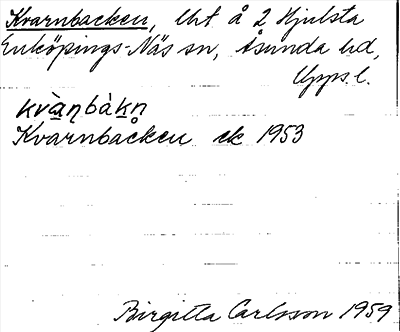 Kvarnbacken, lht å 2 Hjulsta
Enköpings-Näs sn, Åsunda hd,
Upps. l.
kvàṇbàkn̥
Kvarnbacken ek 1953
Birgitta Carlsson 1959